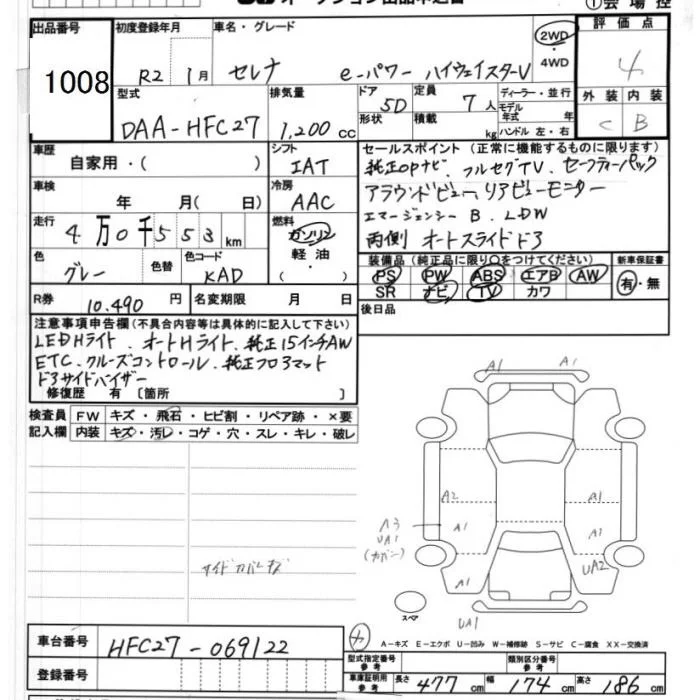 ①会場控
出品番号 初度登録年月 車名・グレード 2WD・4WD 評価点
1008 R2年1月 セレナ e-パワー ハイウェイスターV 4
型式 排気量 ドア 5D 定員 7人 ディーラー・並行 外装 内装
DAA-HFC27 1,200cc 形状 積載 kg モデル年式 年 ハンドル 左・右 C B
車歴 自家用・( ) シフト IAT セールスポイント (正常に機能するものに限ります)
車検 年 月( 日) 冷房 AAC 純正OPナビ、フルセグTV、セーフティーパック
走行 4万0千553km 燃料 ガソリン 軽油・( ) アラウンドビュー、リアビューモニター
エマージェンシーB、LDW
両側オートスライドドア
色 グレー 色替 色コード KAD 装備品 (純正品に限り○をつけてください) 新車保証書
PS PW ABS エアB AW 有・無
SR ナビ TV カワ
R券 10,490円 名変期限 月 日 後日品
注意事項申告欄(不具合内容等は具体的に記入して下さい)
LEDHライト、オートHライト、純正15インチAW
ETC、クルーズコントロール、純正フロアマット
ドアサイドバイザー
修復歴 有 [箇所 ]
検査員 FW キズ・飛石・ヒビ割・リペア跡・×要
記入欄 内装 キズ・汚レ・コゲ・穴・スレ・キレ・破レ
A1 A1
A2 A1
A3 A1 A1
UA1
(カバー)
UA2
A1
サイドカバーキズ
スペア
UA1
車台番号 HFC27-069122
A-キズ E-エクボ U-凹み W-補修跡 S-サビ C-腐食 XX-交換済
登録番号 型式指定番号 参考 類別区分番号 参考
車庫証明用 参考 長さ 477cm 幅 174cm 高さ 186cm